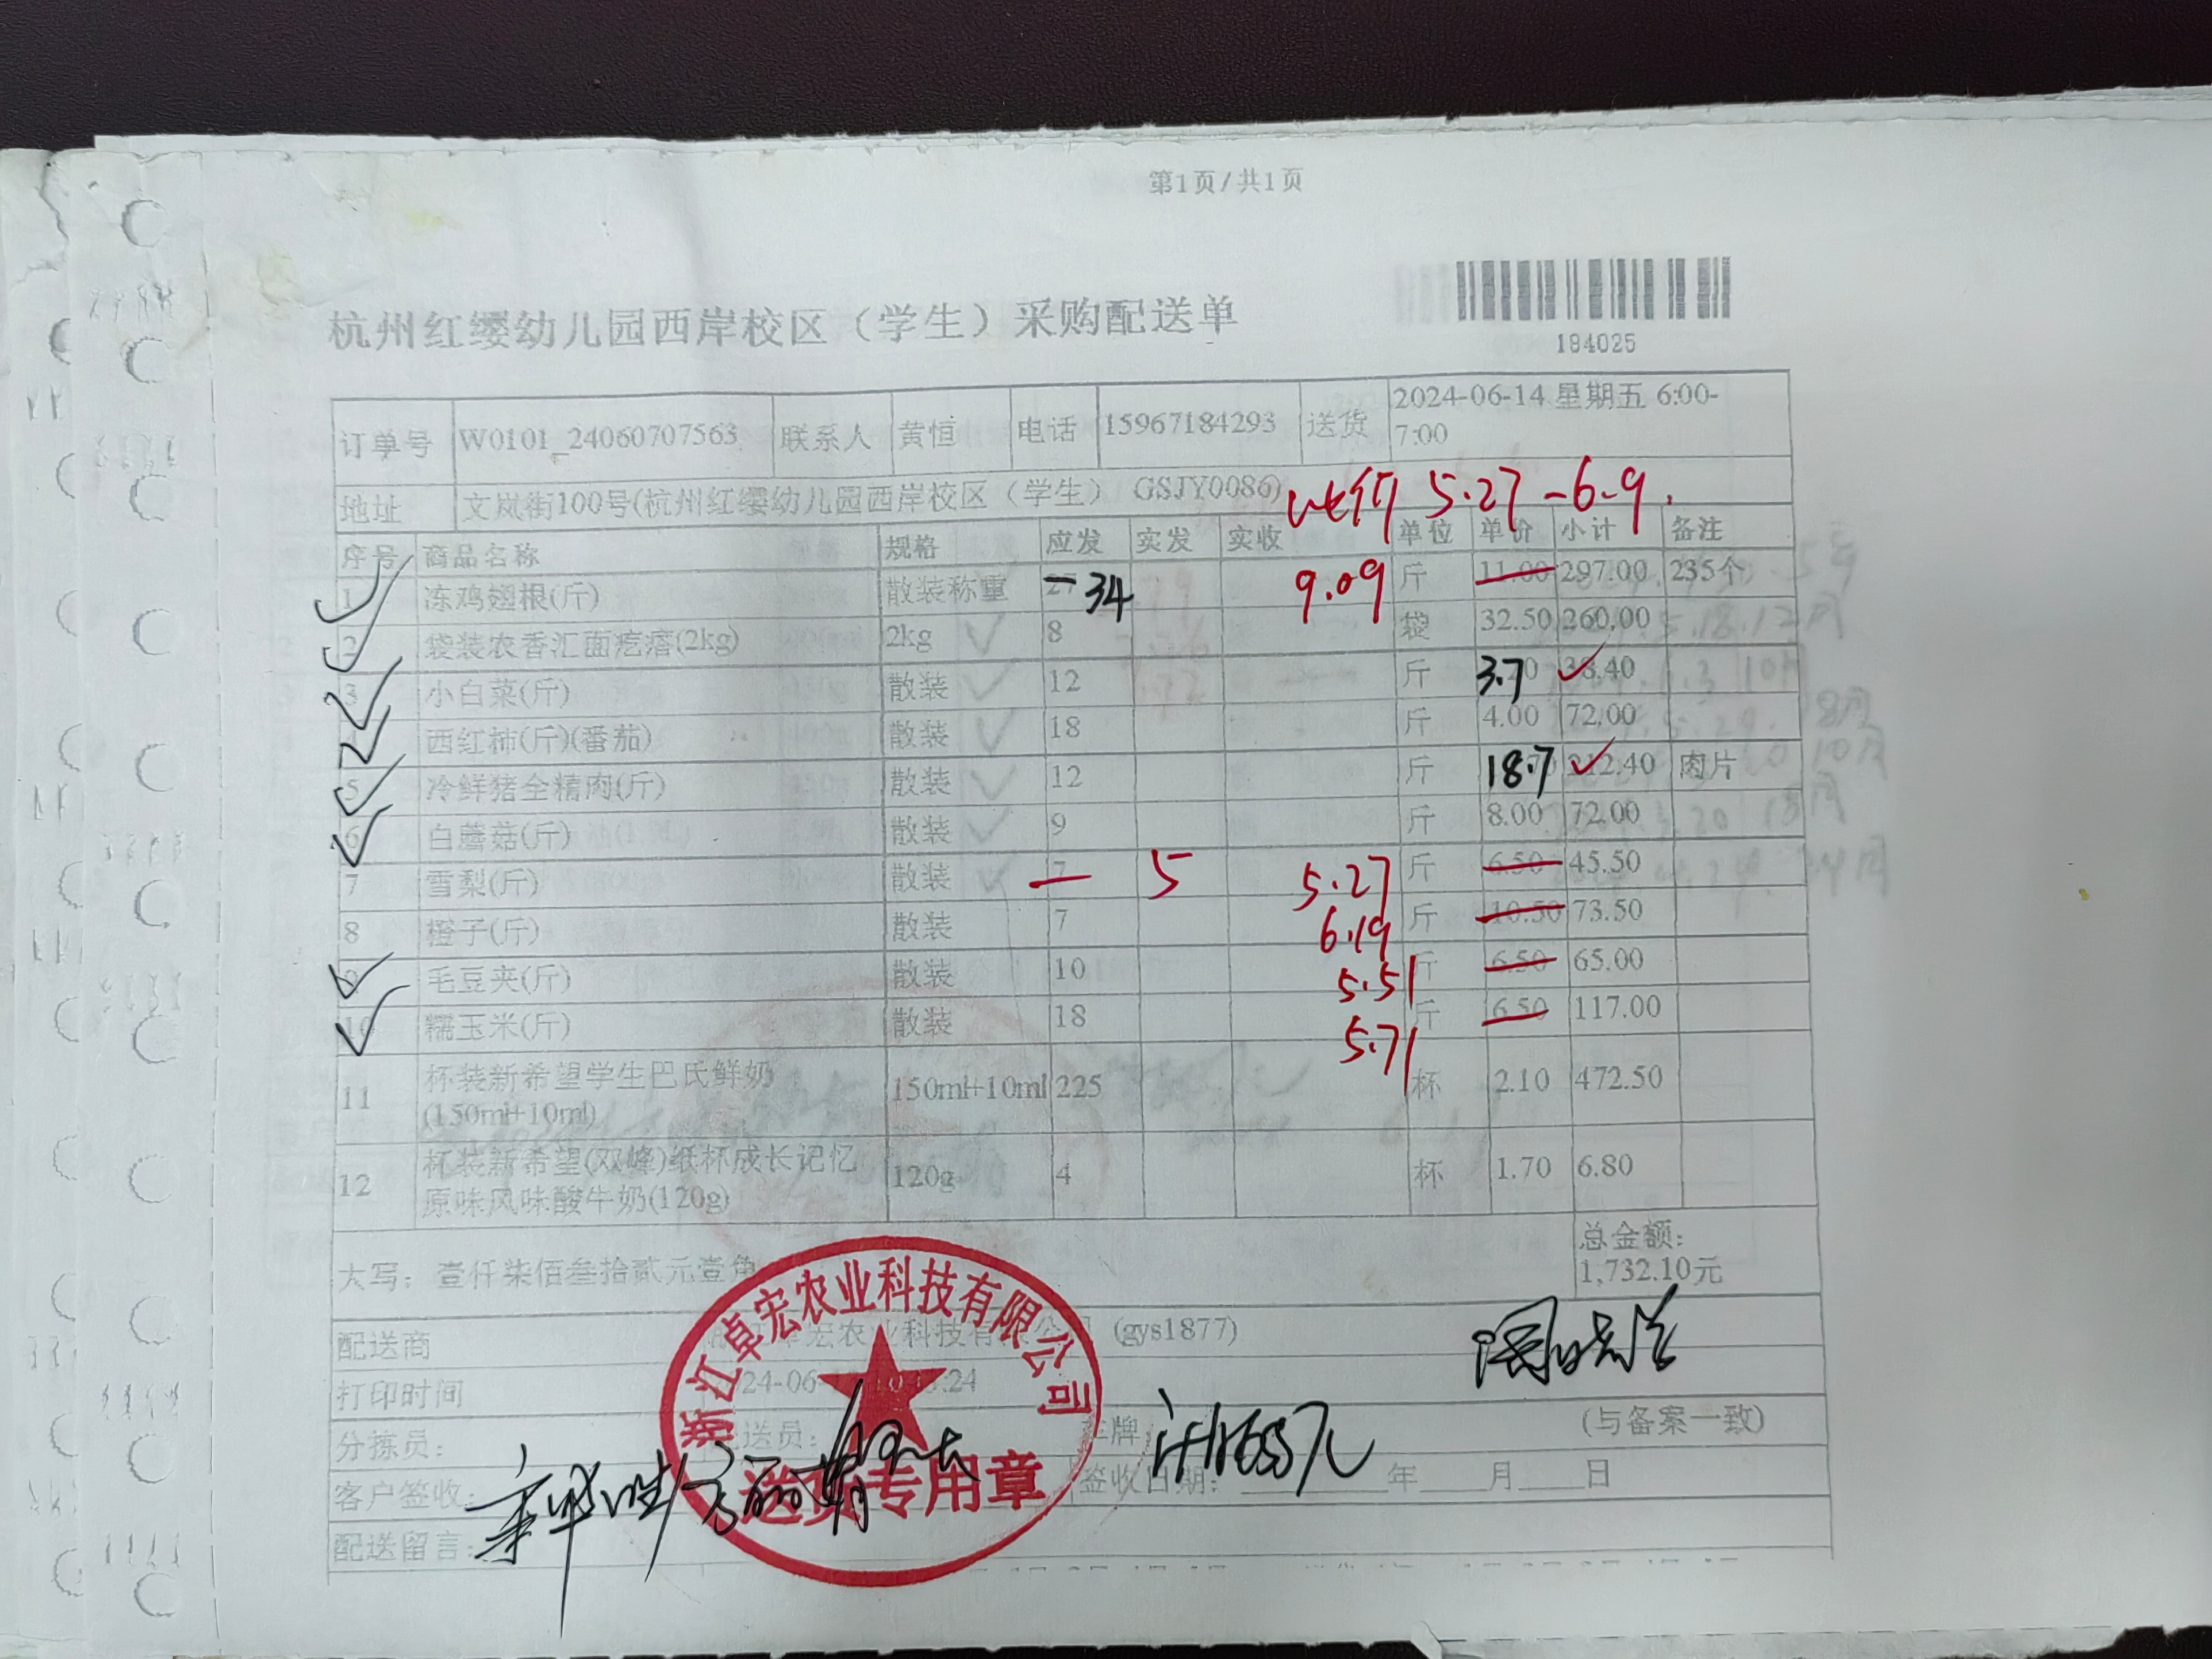 第1页/共1页
杭州红缨幼儿园西岸校区（学生）采购配送单
184025
订单号 W0101_24060707563 联系人 黄恒 电话 15967184293 送货 2024-06-14 星期五 6:00-
7:00
地址 文岚街100号(杭州红缨幼儿园西岸校区（学生） GSJY0086)
5.27-6.9.
序号 商品名称 规格 应发 实发 实收 单位 单价 小计 备注
1 冻鸡翅根(斤) 散装称重 27 34 9.09 斤 11.00 297.00 235个
2 袋装农香汇面疙瘩(2kg) 2kg 8 袋 32.50 260.00
3 小白菜(斤) 散装 12 斤 3.7 38.40
西红柿(斤)(番茄) 散装 18 斤 4.00 72.00
5 冷鲜猪全精肉(斤) 散装 12 斤 18.7 212.40 肉片
6 白蘑菇(斤) 散装 9 斤 8.00 72.00
7 雪梨(斤) 散装 7 5 5.27 斤 6.50 45.50
8 橙子(斤) 散装 7 6.19 斤 10.50 73.50
9 毛豆夹(斤) 散装 10 5.51 斤 6.50 65.00
10 糯玉米(斤) 散装 18 5.71 斤 6.50 117.00
11 杯装新希望学生巴氏鲜奶
(150ml+10ml) 150ml+10ml 225 杯 2.10 472.50
12 杯装新希望(双峰)纸杯成长记忆
原味风味酸牛奶(120g) 120g 4 杯 1.70 6.80
大写：壹仟柒佰叁拾贰元壹角 总金额：
1,732.10元
配送商 宏农业科技有限公司 (gys1877)
打印时间
分拣员： 送员： 车牌 (与备案一致)
客户签收： 签收日期： 年 月 日
配送留言：
浙江卓宏农业科技有限公司
送货专用章